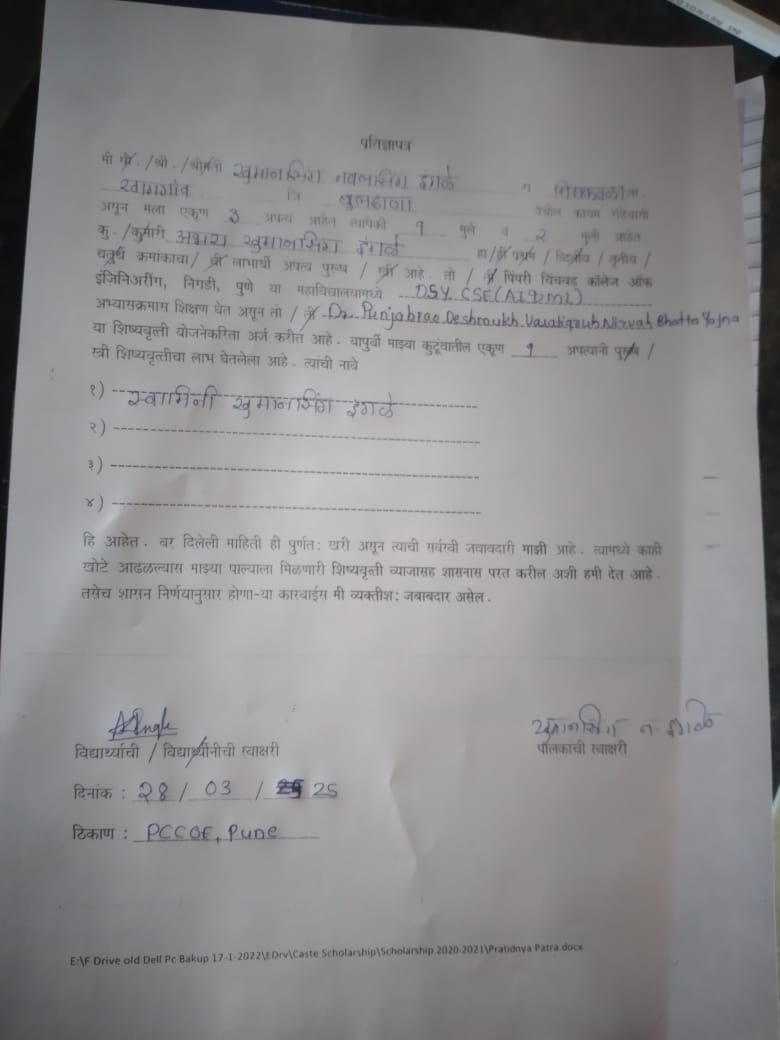 प्रतिज्ञापत्र
मी श्री. /श्री. /श्रीमती खुमानसिंग नवलसिंग इंगळे रा निमकवळा ता.
खामगांव जि बुलढाणा येथील कायम रहिवासी
असून मला एकूण 3 अपत्य आहेत त्यापैकी १ मुले व 2 मुली आहेत
कु. /कुमारी अक्षय खुमानसिंग इंगळे हा/ही प्रथम / द्वितीय / तृतीय /
चतुर्थ क्रमांकाचा/ ची लाभार्थी अपत्य पुरुष / स्त्री आहे. तो / ती पिंपरी चिंचवड कॉलेज ऑफ
इंजिनिअरींग, निगडी, पुणे या महाविद्यालयामध्ये DSY CSE(AI&ML)
अभ्यासक्रमास शिक्षण घेत असून तो / ती Dr. Punjabrao Deshmukh Vasatigruh Nirvah Bhatta Yojna
या शिष्यवृत्ती योजनेकरिता अर्ज करीत आहे. यापुर्वी माझ्या कुटूंबातील एकूण 1 अपत्यांनी पुरुष /
स्त्री शिष्यवृत्तीचा लाभ घेतलेला आहे. त्यांची नावे
१) स्वामिनी खुमानसिंग इंगळे
२)
३)
४)
हि आहेत. वर दिलेली माहिती ही पुर्णत: खरी असून त्याची सर्वस्वी जवाबदारी माझी आहे. त्यामध्ये काही
खोटे आढळल्यास माझ्या पाल्याला मिळणारी शिष्यवृत्ती व्याजासह शासनास परत करील अशी हमी देत आहे.
तसेच शासन निर्णयानुसार होणा-या कारवाईस मी व्यक्तीश: जबाबदार असेल.
AIngle खुमानसिंग न इंगळे
विद्यार्थ्याची / विद्यार्थीनीची स्वाक्षरी पालकांची स्वाक्षरी
दिनांक : 28/ 03 / 25
ठिकाण : PCCOE, Pune
E:\F Drive old Dell Pc Bakup 17-1-2022\EDrv\Caste Scholarship\Scholarship 2020-2021\Pratidnya Patra.docx